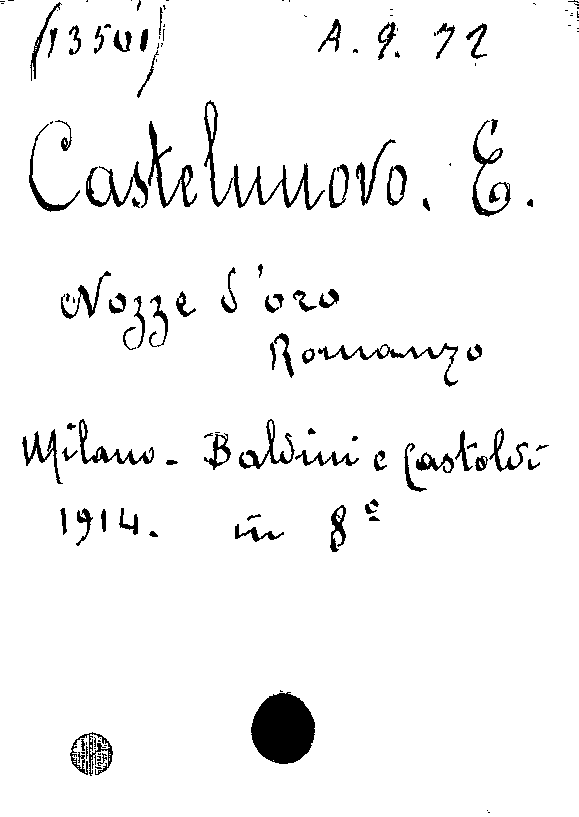 (13501) A. 9. 72
Castelnuovo. E.
Nozze d'oro
Romanzo
Milano - Baldini e Castoldi
1914. in 8º